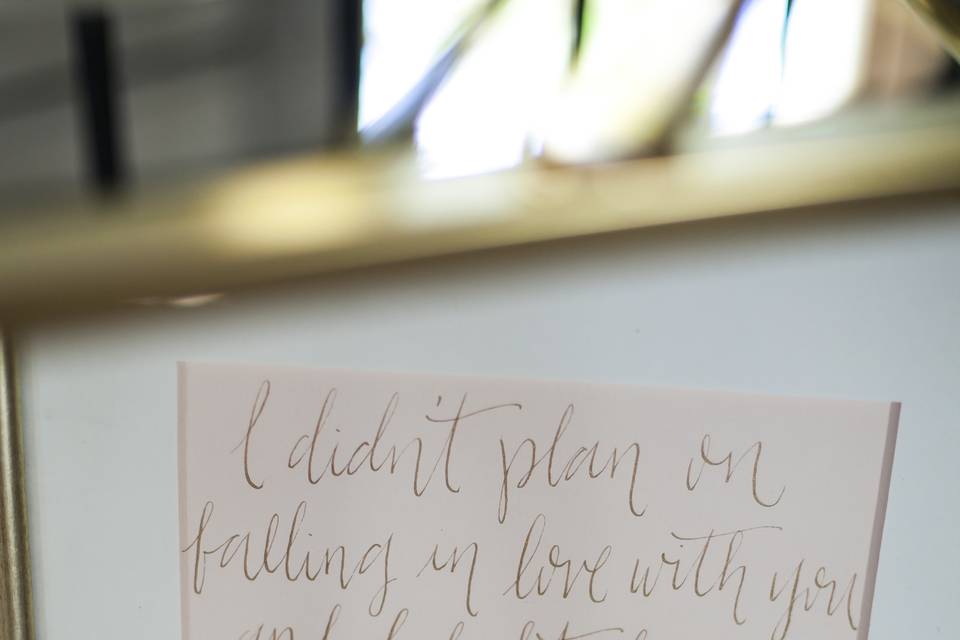 I didn't plan on
falling in love with you